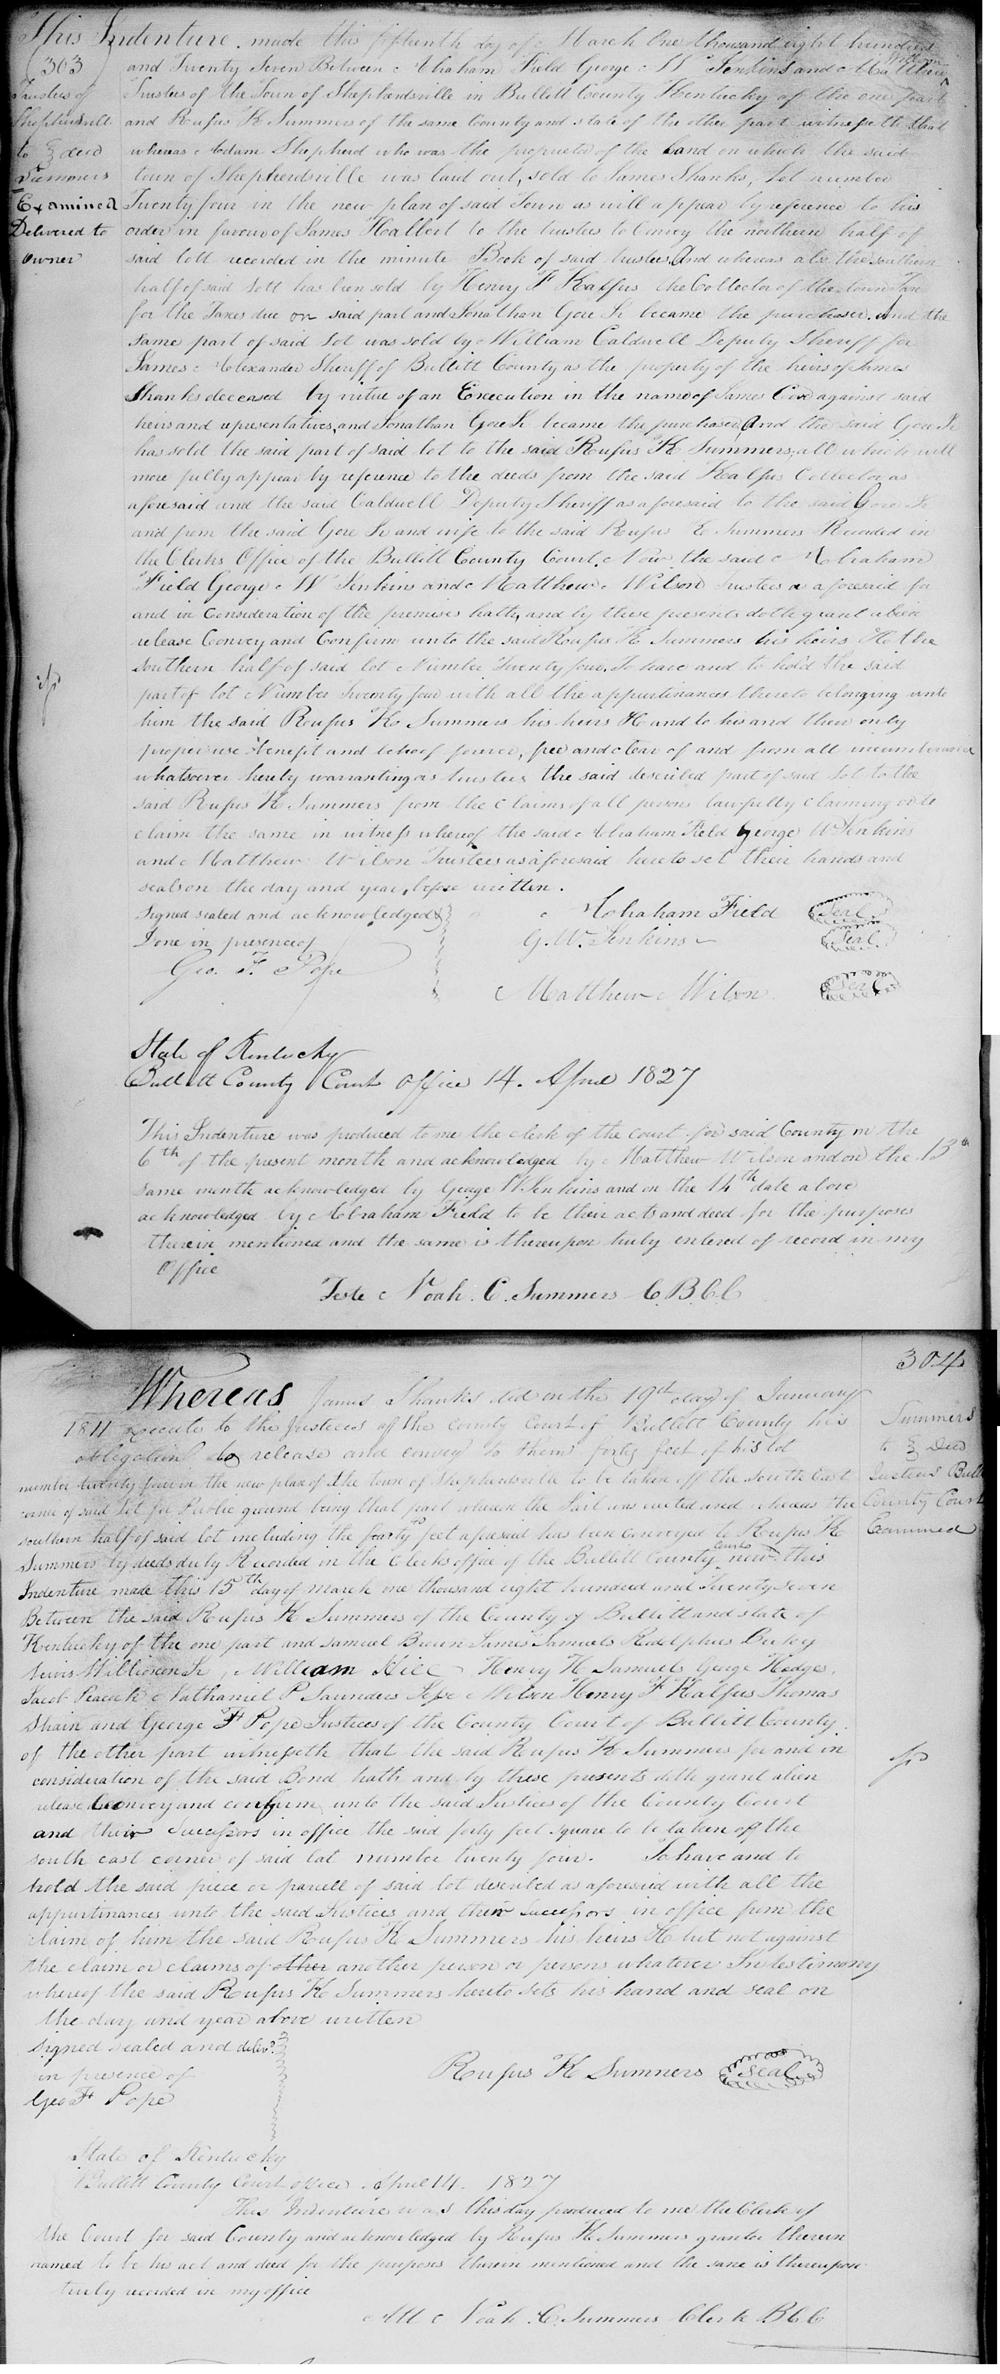 This Indenture made this fifteenth day of March One thousand eight hundred
(303)
and Twenty Seven Between Abraham Field George W Jenkins and Matthew Wilson
Trustees of the Town of Shepherdsville in Bullitt County Kentucky of the one part
and Rufus K Summers of the same County and state of the other part witnesseth that
whereas Adam Shepherd who was the proprietor of the Land on which the said
town of Shepherdsville was laid out, sold to James Shanks, Lot number
Twenty four in the new plan of said Town as will appear by reference to his
order in favour of James Halbert to the trustees to Convey the northern half of
said lott recorded in the minute Book of said trustees And whereas also the southern
half of said Lott has been sold by Henry F Kalfus the Collector of the town Tax
for the Taxes due on said part and Jonathan Gore Sr became the purchaser. And the
same part of said Lot was sold by William Caldwell Deputy Sheriff for
James Alexander Sheriff of Bullitt County as the property of the heirs of James
Shanks deceased by virtue of an Execution in the name of James Cox against said
heirs and representatives, and Jonathan Gore Sr became the purchaser, And the said Gore Sr
has sold the said part of said lot to the said Rufus K Summers, all which will
more fully appear by reference to the deeds from the said Kalfus Collector as
aforesaid and the said Caldwell Deputy Sheriff as aforesaid to the said Gore Sr
and from the said Gore Sr and wife to the said Rufus K Summers Recorded in
the Clerks Office of the Bullitt County Court. Now the said Abraham
Field George W Jenkins and Matthew Wilson Trustees as aforesaid for
and in Consideration of the premises hath, and by these presents doth grant alien
release Convey and Confirm unto the said Rufus K Summers his heirs &c the
Southern half of said lot Number Twenty four. To have and to hold the said
part of lot Number Twenty four with all the appurtinances thereto belonging unto
him the said Rufus K Summers his heirs &c and to his and their only
proper use benefit and behoof forever, free and clear of and from all incumbrances
whatsoever hereby warranting as trustees the said described part of said Lot to the
said Rufus K Summers from the Claims of all persons lawfully claiming or to
claim the same in witness whereof the said Abraham Field George W Jenkins
and Matthew Wilson Trustees as aforesaid hereto set their hands and
seals on the day and year, before written.
Trustees of
Shepherdsville
to } deed
Summers
Examined
Delivered to
Owner
Signed sealed and acknowledged
Done in presence of
Geo. F. Pope
Abraham Field Seal
G. W. Jenkins Seal
Matthew Wilson Seal
State of Kentucky
Bullitt County Court office 14. April 1827
This Indenture was produced to me the clerk of the court for said County on the
6th of the present month and acknowledged by Matthew Wilson and on the 13th
same month acknowledged by George W Jenkins and on the 14th date above
acknowledged by Abraham Field to be their acts and deed for the purposes
therein mentioned and the same is thereupon truly entered of record in my
Office
Teste Noah C. Summers C.B.C.C
304
Whereas James Shanks did on the 19th day of January
1811 execute to the Justices of the County Court of Bullitt County his
obligation to release and convey to them forty feet of his lot
number twenty four in the new plan of the town of Shepherdsville to be taken off the South East
corner of said Lot for Public ground being that part whereon the Jail was erected and whereas the
southern half of said lot including the forty feet aforesaid has been conveyed to Rufus K
Summers by deeds duly Recorded in the Clerks office of the Bullitt County Court now this
Indenture made this 15th day of march one thousand eight hundred and Twenty seven
Between the said Rufus K Summers of the County of Bullitt and state of
Kentucky of the one part and Samuel Brown James Samuels Rodolphus Buky
Lewis Wilkinson Sr, William Hill Henry H Samuels George Hodge,
Jacob Peacock Nathaniel P Saunders Jesse Wilson Henry F Kalfus Thomas
Shain and George F Pope Justices of the County Court of Bullitt County
of the other part witnesseth that the said Rufus K Summers for and in
consideration of the said Bond hath and by these presents doth grant alien
release Convey and confirm unto the said Justices of the County Court
and their Successors in office the said forty feet square to be taken off the
south east corner of said lot number twenty four. To have and to
hold the said piece or parcell of said lot described as aforesaid with all the
appurtinances unto the said Justices and their successors in office from the
claim of him the said Rufus K Summers his heirs &c but not against
the claim or claims of other another person or persons whatever In testimony
whereof the said Rufus K Summers hereto sets his hand and seal on
the day and year above written
Summers
to } Deed
Justices Bull
County Court
Examined
signed sealed and deliv.d
in presence of
Geo F Pope
Rufus K Summers Seal
State of Kentucky
Bullitt County Court office April 14. 1827
This Indenture was this day produced to me the Clerk of
the Court for said County and acknowledged by Rufus K Summers grantor therein
named to be his act and deed for the purposes therein mentioned and the same is thereupon
truly recorded in my office
Att Noah C. Summers Clerk B.C.C